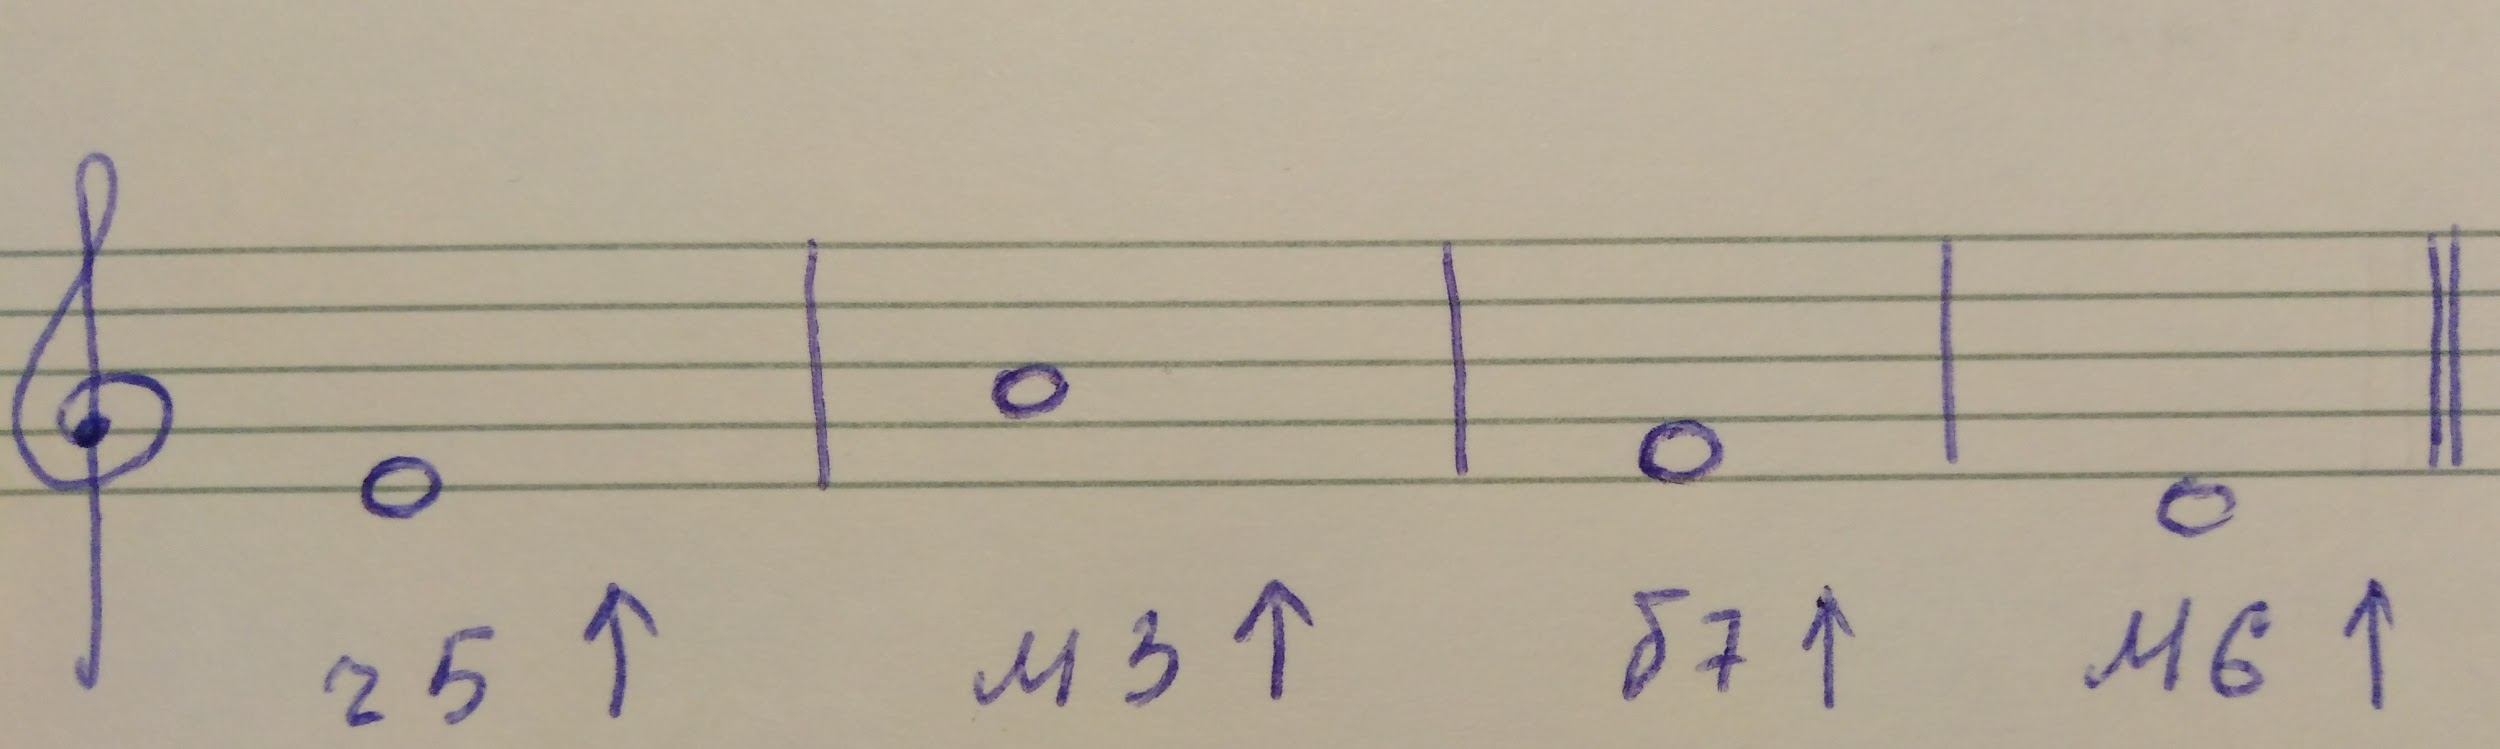 ч5 ↑ м3 ↑ б7 ↑ м6 ↑